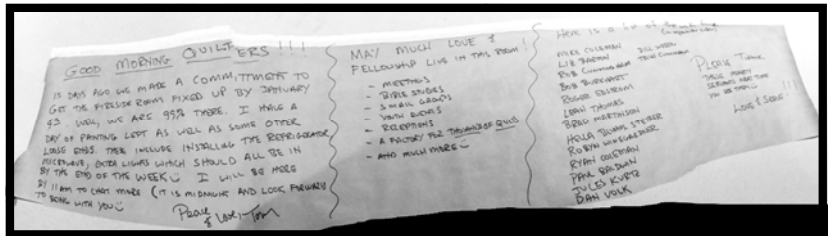 GOOD MORNING QUILTERS!!!
15 DAYS AGO WE MADE A COMMITTMENT TO
GET THE FIRESIDE ROOM FIXED UP BY JANUARY
43. WELL, WE ARE 95% THERE. I HAVE A
DAY OF PAINTING LEFT AS WELL AS SOME OTHER
LOOSE ENDS. THEY INCLUDE INSTALLING THE REFRIGERATOR
MICROWAVE, EXTRA LIGHTS WHICH SHOULD ALL BE IN
BY THE END OF THE WEEK I WILL BE HERE
BY 11AM TO CHAT MORE (IT IS MIDNIGHT AND LOOK FORWARD
TO BEING WITH YOU
Peace
& Love, Tom
MAY MUCH LOVE &
FELLOWSHIP LIVE IN THIS ROOM!
- MEETINGS
- BIBLE STUDIES
- SMALL GROUPS
- YOUTH EVENTS
- RECEPTIONS
- A FACTORY FOR THOUSANDS OF QUILTS
- AND MUCH MORE
HERE IS A list OF the
MIKE COLEMAN
LIB BARTON
BOB CUNNINGHAM
BOB BURKHART
ROGER EDSTROM
LEAH THOMAS
BRAD MARTINSON
HELLA BUHAUL STEUBER
ROBYN WINEGARDNER
RYAN COLEMAN
PAUL BALDWIN
JULES KURTZ
DAN VOLK
BILL
CUNNINGHAM
PLEASE THANK
THESE
SERVANTS NEXT TIME
YOU SEE THEM
LOVE & SERVE!!!